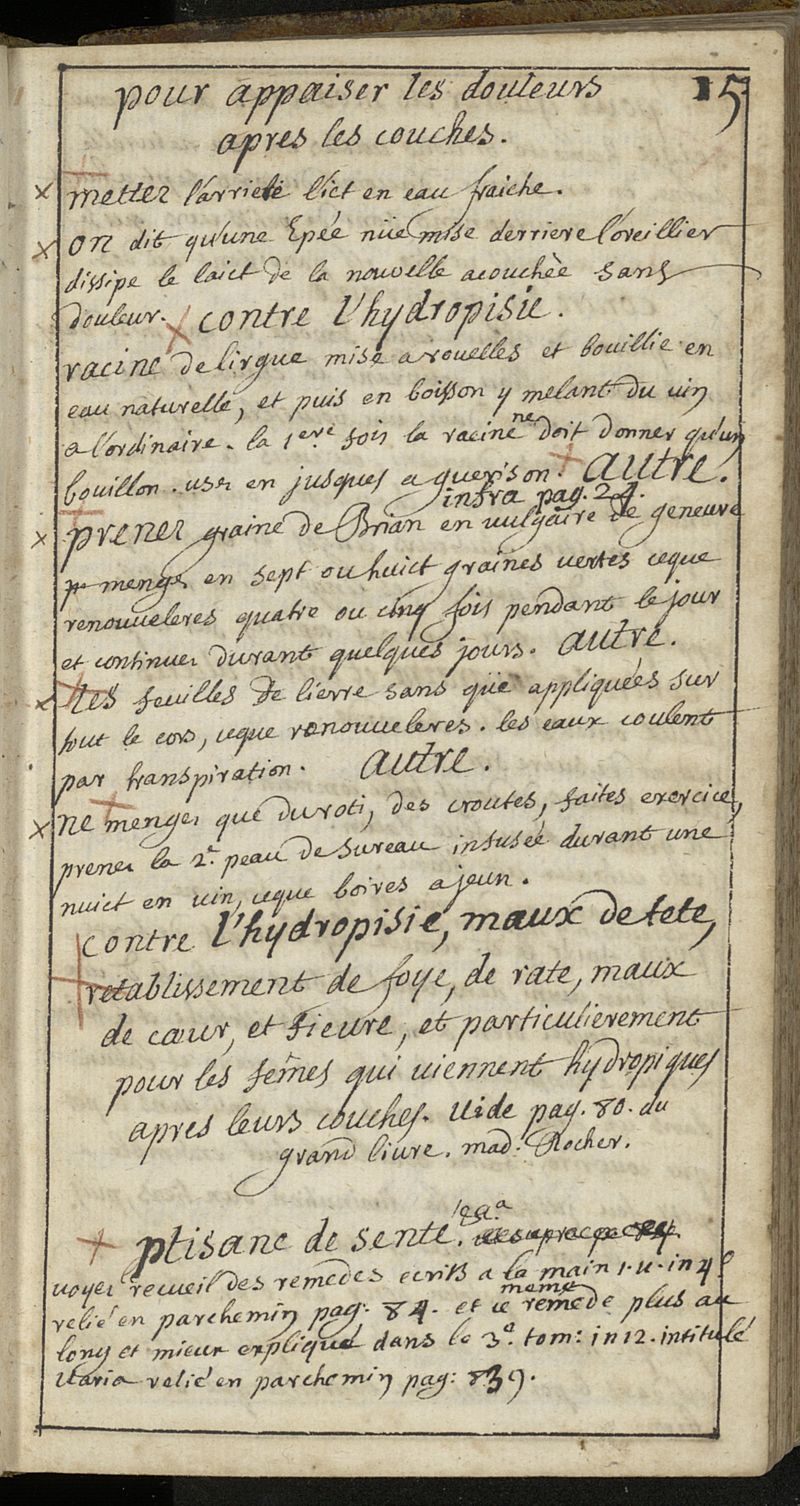 15
pour appaiser les douleurs
apres les couches.
mettez l'arriele lict en eau fraiche.
on dit qu'une Epée nüe mise derriere l'oreillier
dissipe le laict de la nouvelle acouchée sans
douleur. contre l'hydropisie.
racine de lirgue mise a rouelles et bouillie en
eau naturelle, et puis en boisson y melant du vin
a l'ordinaire. la 1ere fois la racine ne doit donner qu'un
bouillon. usez en jusques a guerison. autre.
infra pag. 24.
prenez graine de Brian en vulgaire de genevre
mengez en sept ou huict graines vertes ceque
renouveleres quatre ou cinq fois pendant le jour
et continuez durant quelques jours. autre.
les feuilles de lierre sans qüe appliquées sur
tout le cors, ceque renouveleres. les eaux coulent
par transpiration. autre.
ne mengez que du roti, des croutes, faites exercice,
prenez la 2e. peau de sureau infusée durant une
nuict en vin, ceque boires a jeun.
contre l'hydropisie, maux de tete,
retablissement de foye, de rate, maux
de cœur, et fievre, et particulierement
pour les fem̃es qui viennent hydropiques
apres leurs couches. Vide pag. 80. du
grand livre. mad. Rocher.
ptisane de senté.
voyez recueil des remedes ecrits a la main 1. v. in 4o
relié en parchemin pag: 84. et ce meme remede plus au
long et mieux expliqué dans le 3a. tom: in 12. intitulé
Varia relié en parchemin pag: 839.